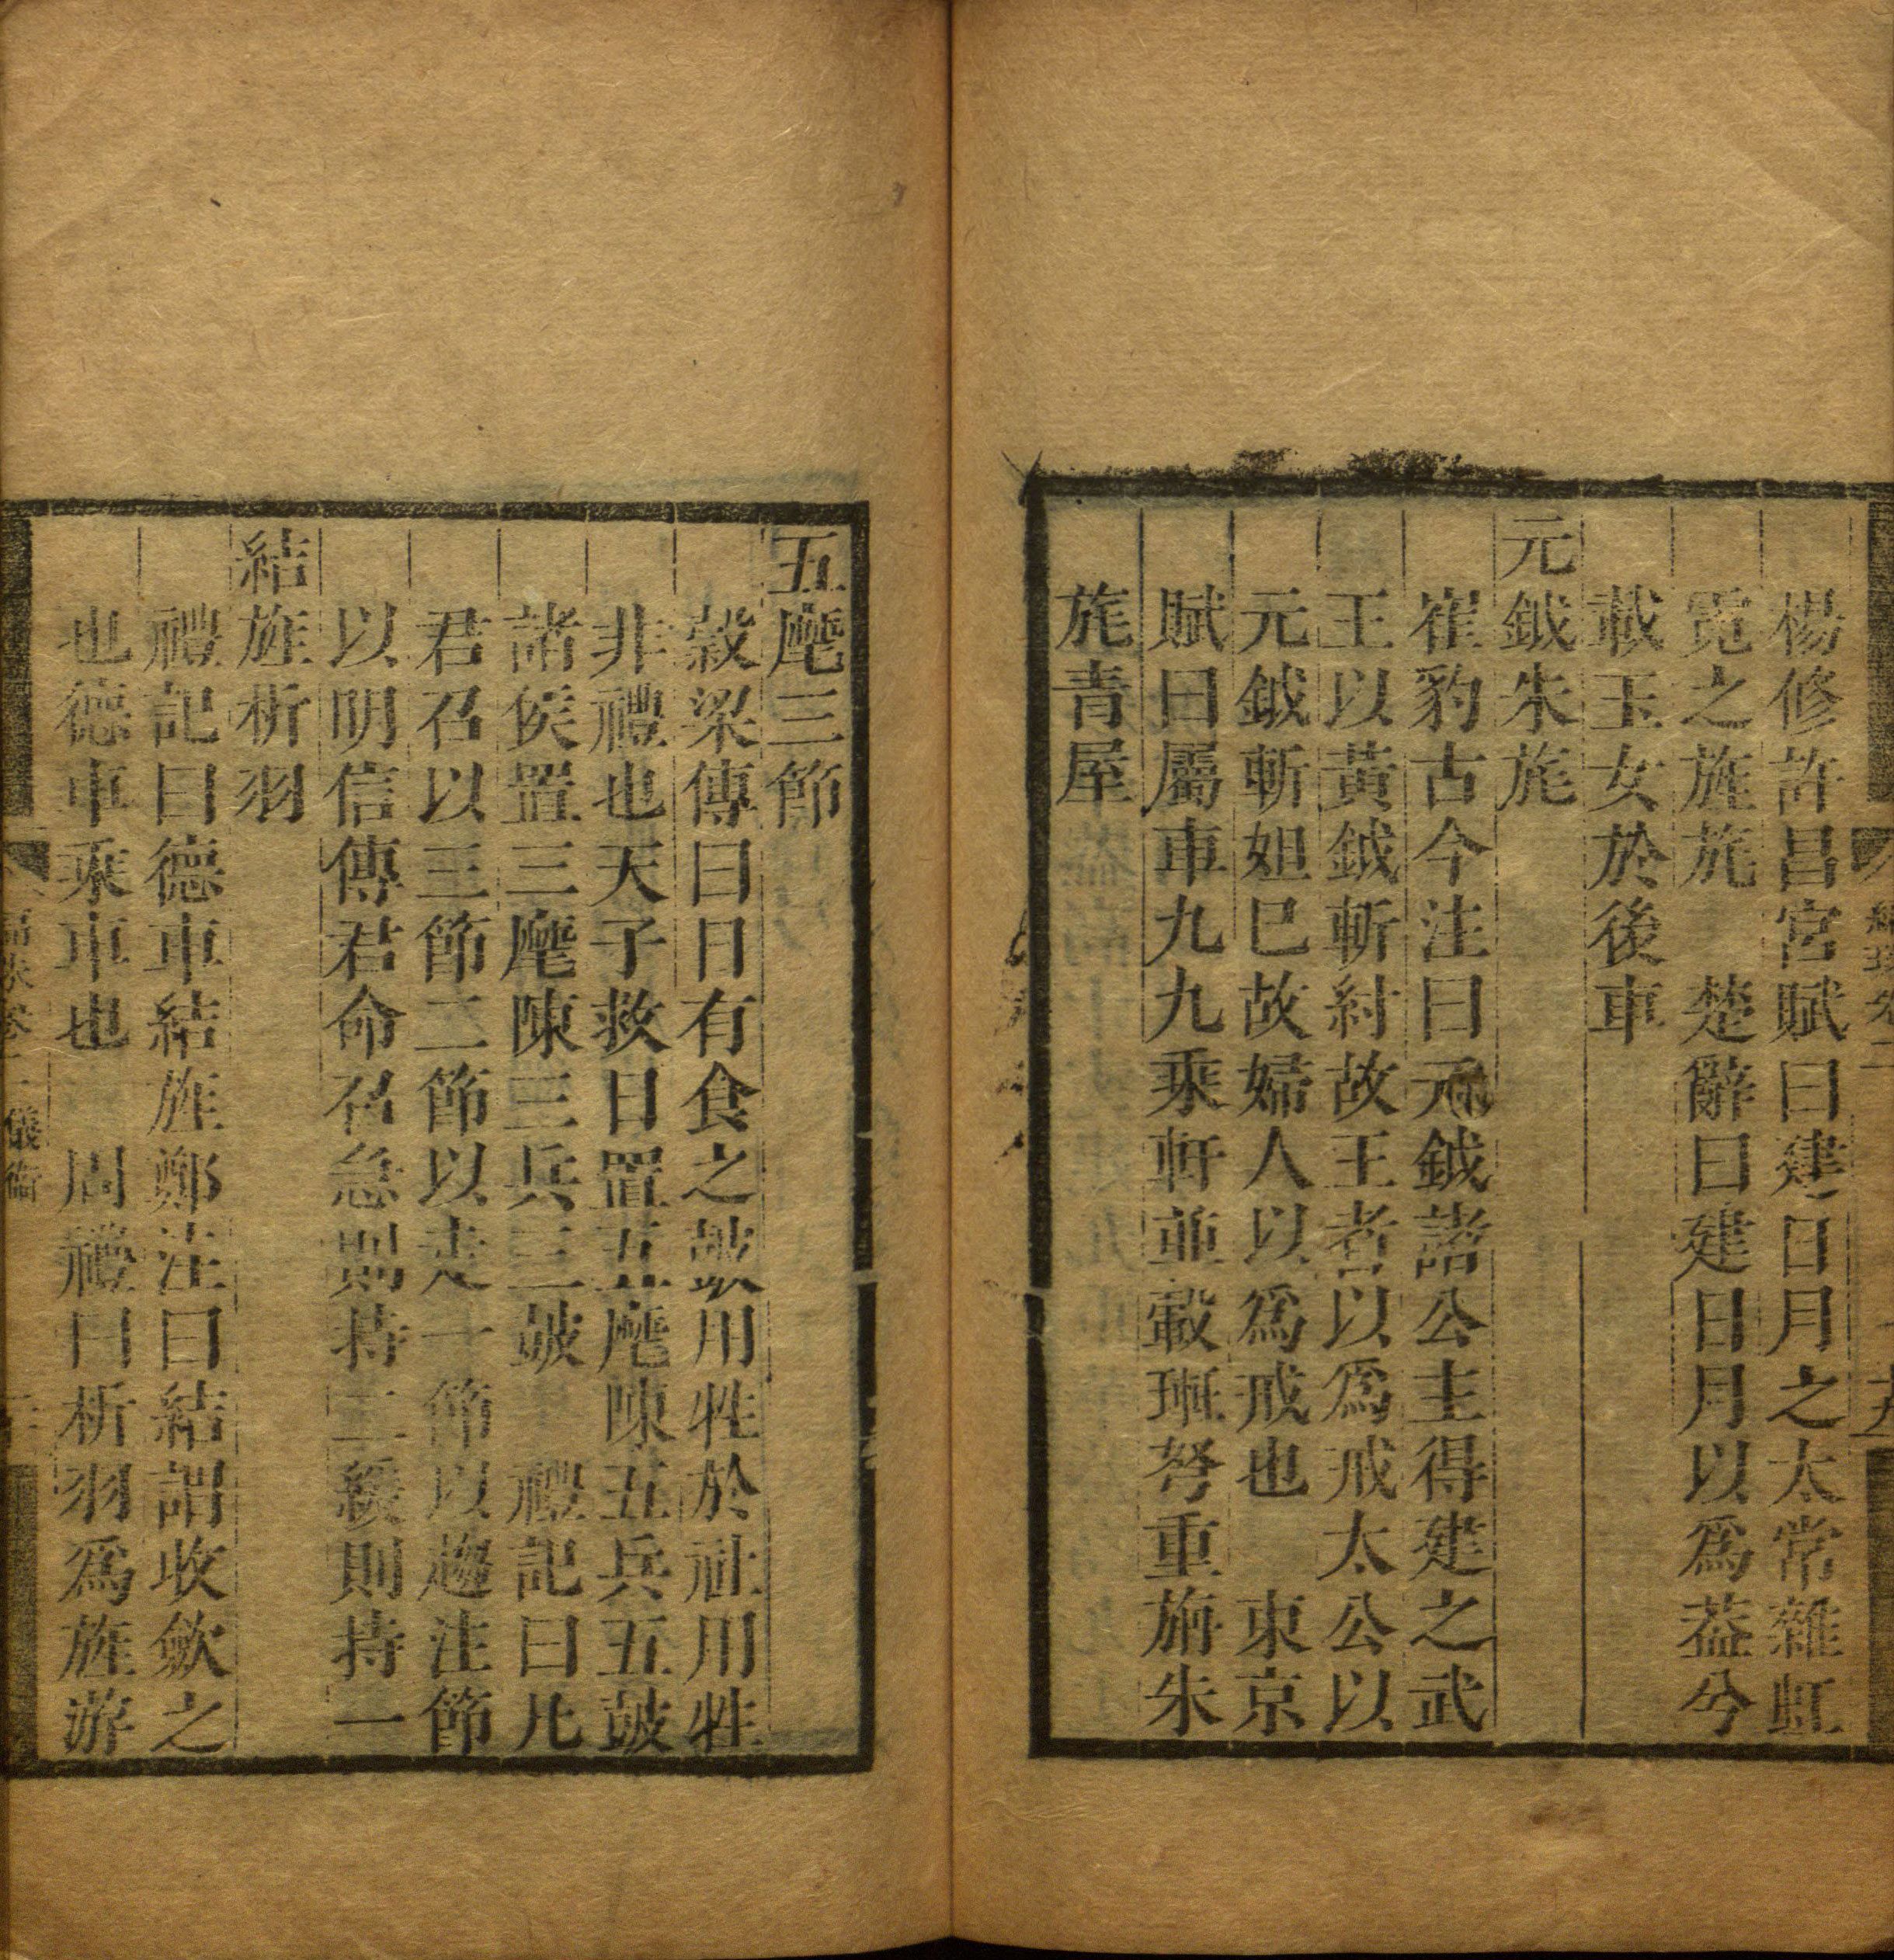 楊修許昌宮賦曰建日月之太常雜虹
霓之旌旄 楚辭曰建日月以爲葢兮
載玉女於後車
元鉞朱旄
崔豹古今注曰元鉞諸公主得建之武
王以黃鉞斬紂故王者以爲戒太公以
元鉞斬妲巳故婦人以爲戒也 東京
賦曰屬車九九乘軒並轂㻱弩重旃朱
旄青屋
五麾三節
榖梁傳曰日有食之鼓用牲於社用牲
非禮也天子救日置五麾陳五兵五鼓
諸侯置三麾陳三兵三鼓 禮記曰凡
君召以三節二節以走一節以趨注節
以明信傳君命召急則持二緩則持一
結旌析羽
禮記曰德車結旌鄭注曰結謂收歛之
也德車乘車也 周禮曰析羽爲旌游
儀衛